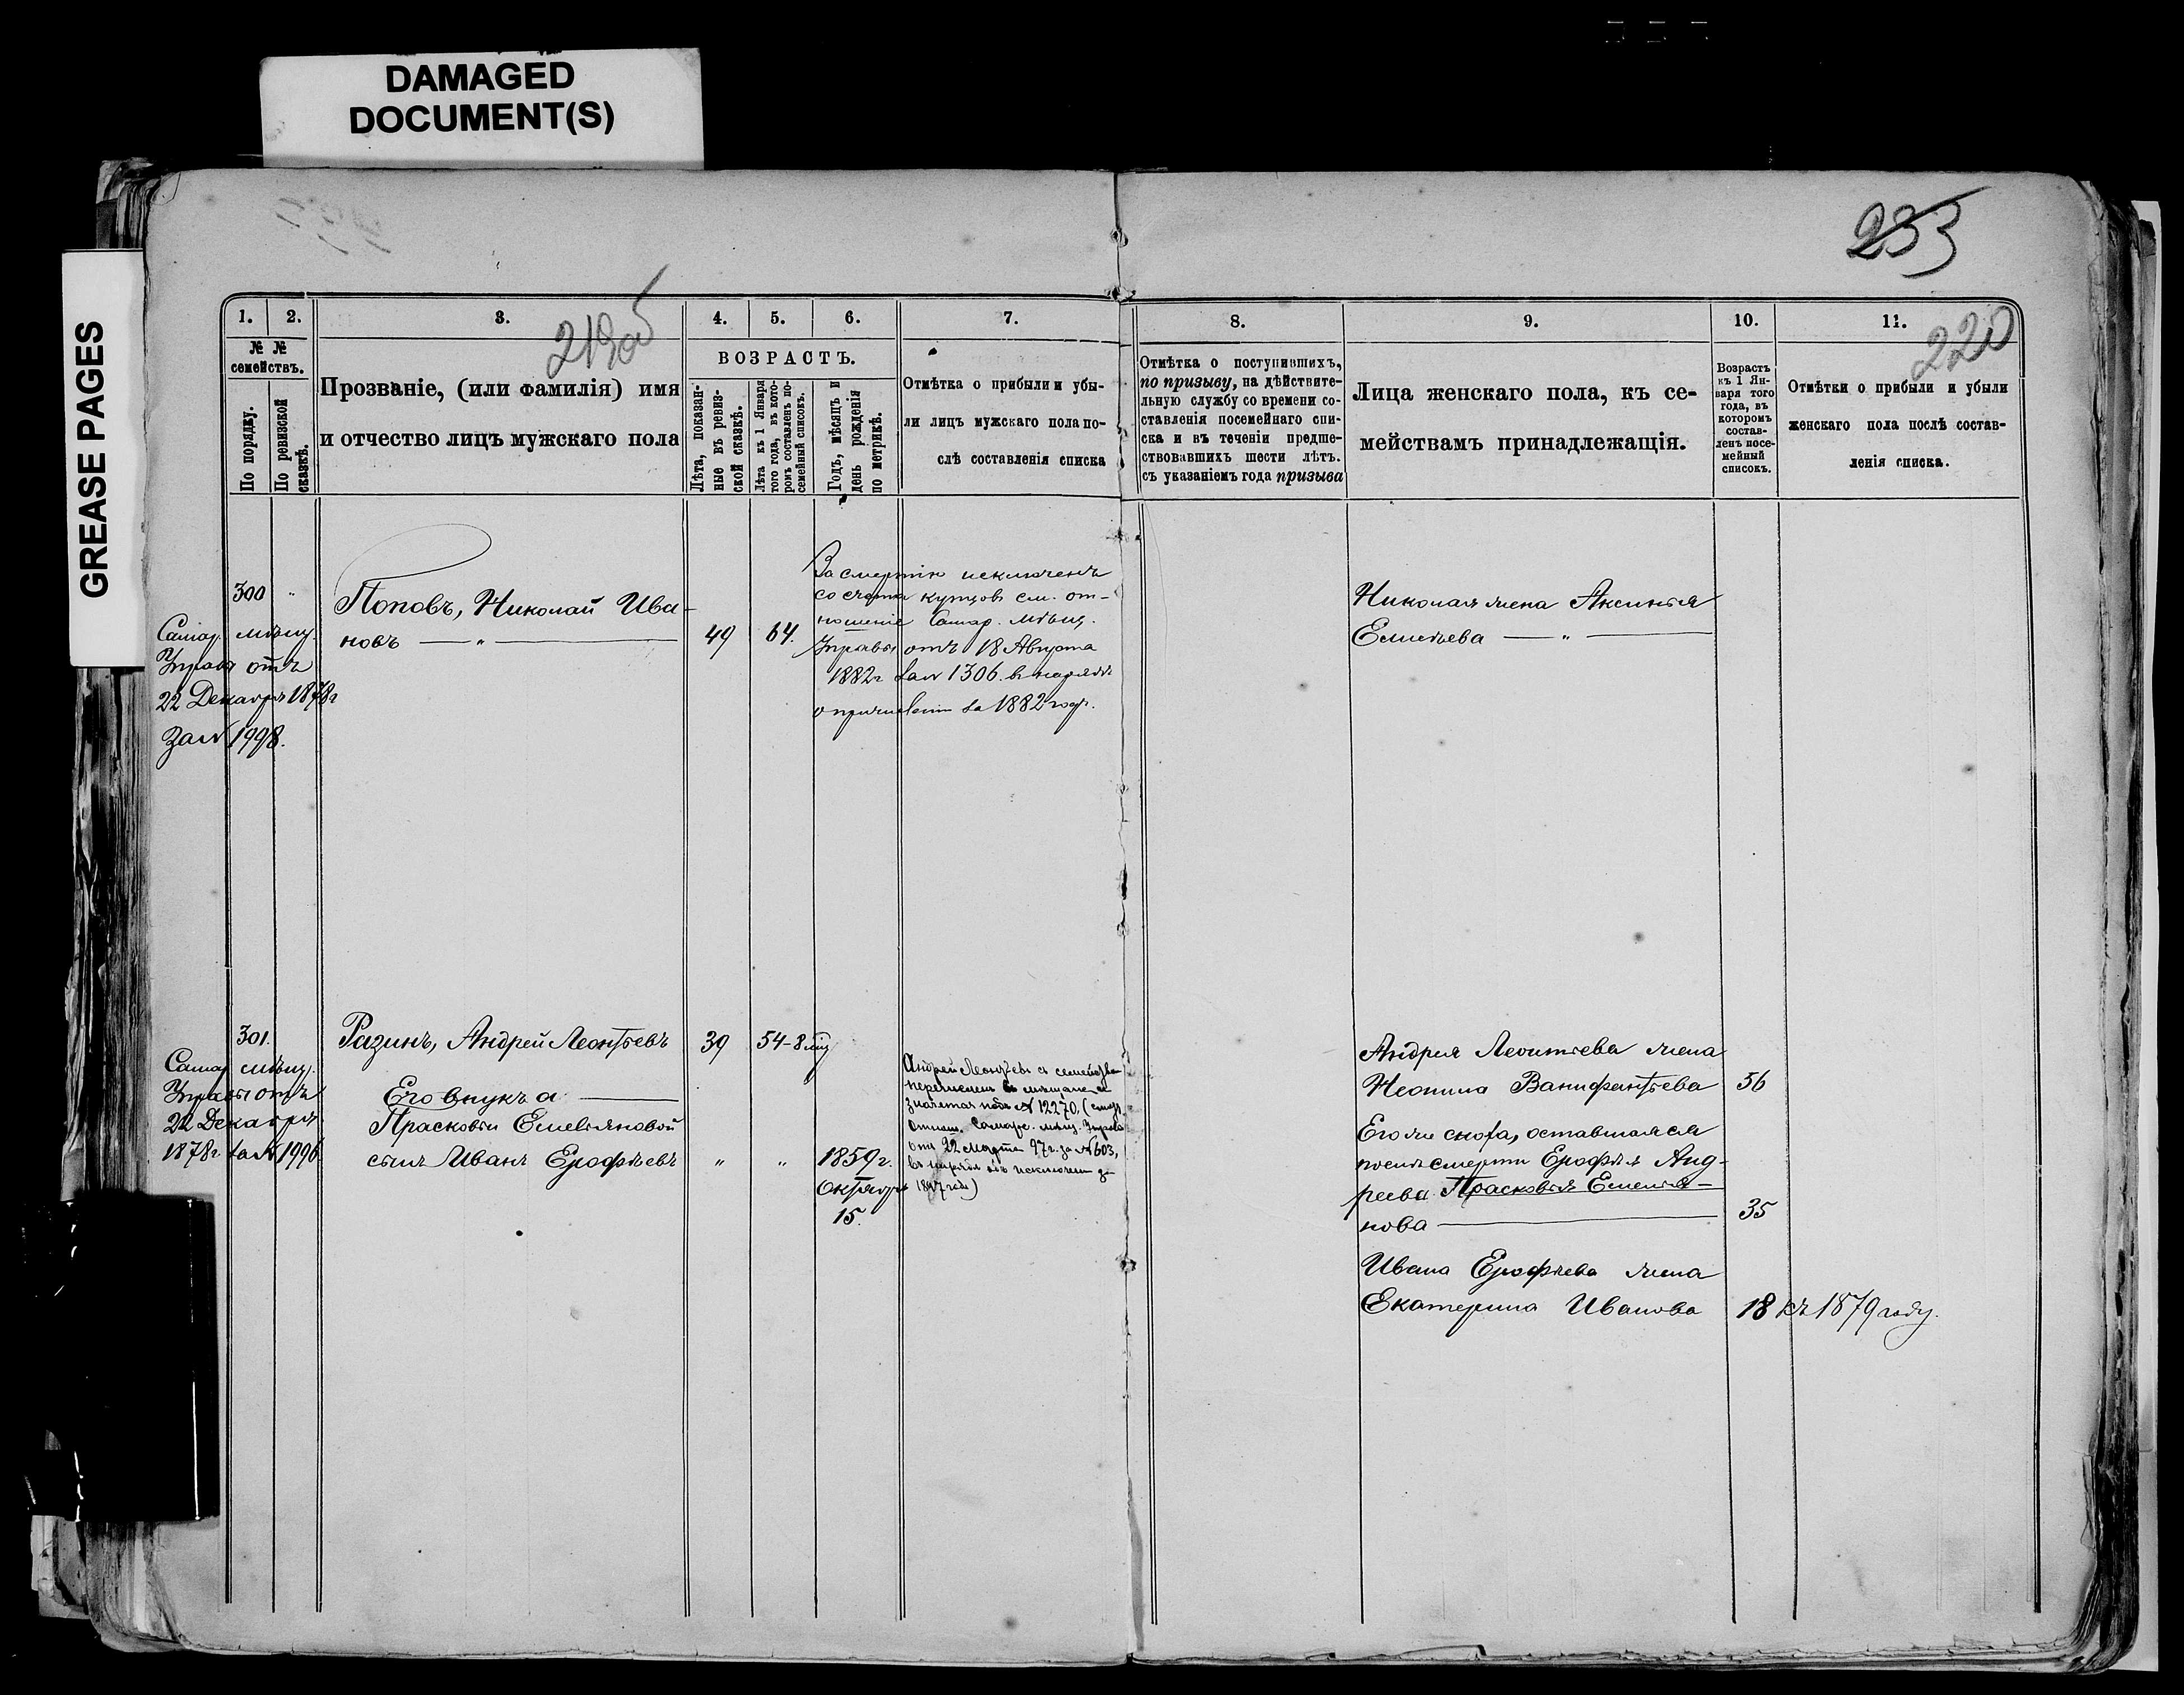 DAMAGED
DOCUMENT(S)
GREASE PAGES
233
219об
220
1. 2. 3. 4. 5. 6. 7. 8. 9. 10. 11.
№ №
семействъ.
По порядку.
По ревизской
сказкѣ.
Прозваніе, (или фамилія) имя
и отчество лицъ мужскаго пола
ВОЗРАСТЪ.
Лѣта, показан-
ные въ ревиз-
ской сказкѣ.
Лѣта къ 1 Января
того года, въ кото-
ромъ составленъ по-
семейный списокъ.
Годъ, мѣсяцъ и
день рожденія
по метрикѣ.
Отмѣтка о прибыли и убы-
ли лицъ мужскаго пола по-
слѣ составленія списка
Отмѣтка о поступившихъ,
по призыву, на дѣйствите-
льную службу со времени со-
ставленія посемейнаго спи-
ска и въ теченіи предше-
ствовавшихъ шести лѣтъ.
съ указаніемъ года призыва
Лица женскаго пола, къ се-
мействамъ принадлежащія.
Возрастъ
къ 1 Ян-
варя того
года, въ
которомъ
состав-
ленъ посе-
мейный
списокъ.
Отмѣтки о прибыли и убыли
женскаго пола послѣ состав-
ленія списка.
300 "
Самар. мѣщ.
Управы отъ
22 Декабря 1878г
за № 1998.
Поповъ, Николай Ива-
новъ — " —
49 64.
За смертію исключенъ
со счета купцовъ см. от-
ношеніе Самар. мѣщ.
Управы отъ 18 Августа
1882г за № 1306. въ нарядѣ
о причисленіи за 1882 годъ.
Николая жена Аксинья
Елисѣева — " —
301.
Самар. мѣщ.
Управы отъ
22 Декабря
1878г за № 1996
Разинъ, Андрей Леонтьевъ 39 54-8 мѣц
Его внука
Прасковьи Емельяновой
сынъ Иванъ Ерофѣевъ " " 1859г.
Октября
15.
Андрей Леонтьевъ съ семейством
перечисленъ въ мѣщане и
значится подъ № 12270, (
отнош. Самарс. мѣщ. Управы
отъ 22 марта 97г. за № 603,
въ нарядѣ объ исключеніи за
1897 годъ)
Андрея Леонтьева жена
Неонила Ванифантьева 56
Его же сноха, оставшаяся
послѣ смерти Ерофѣя Анд-
реева Прасковья Емелья-
нова — 35
Ивана Ерофѣева жена
Екатерина Иванова 18 къ 1879 году.